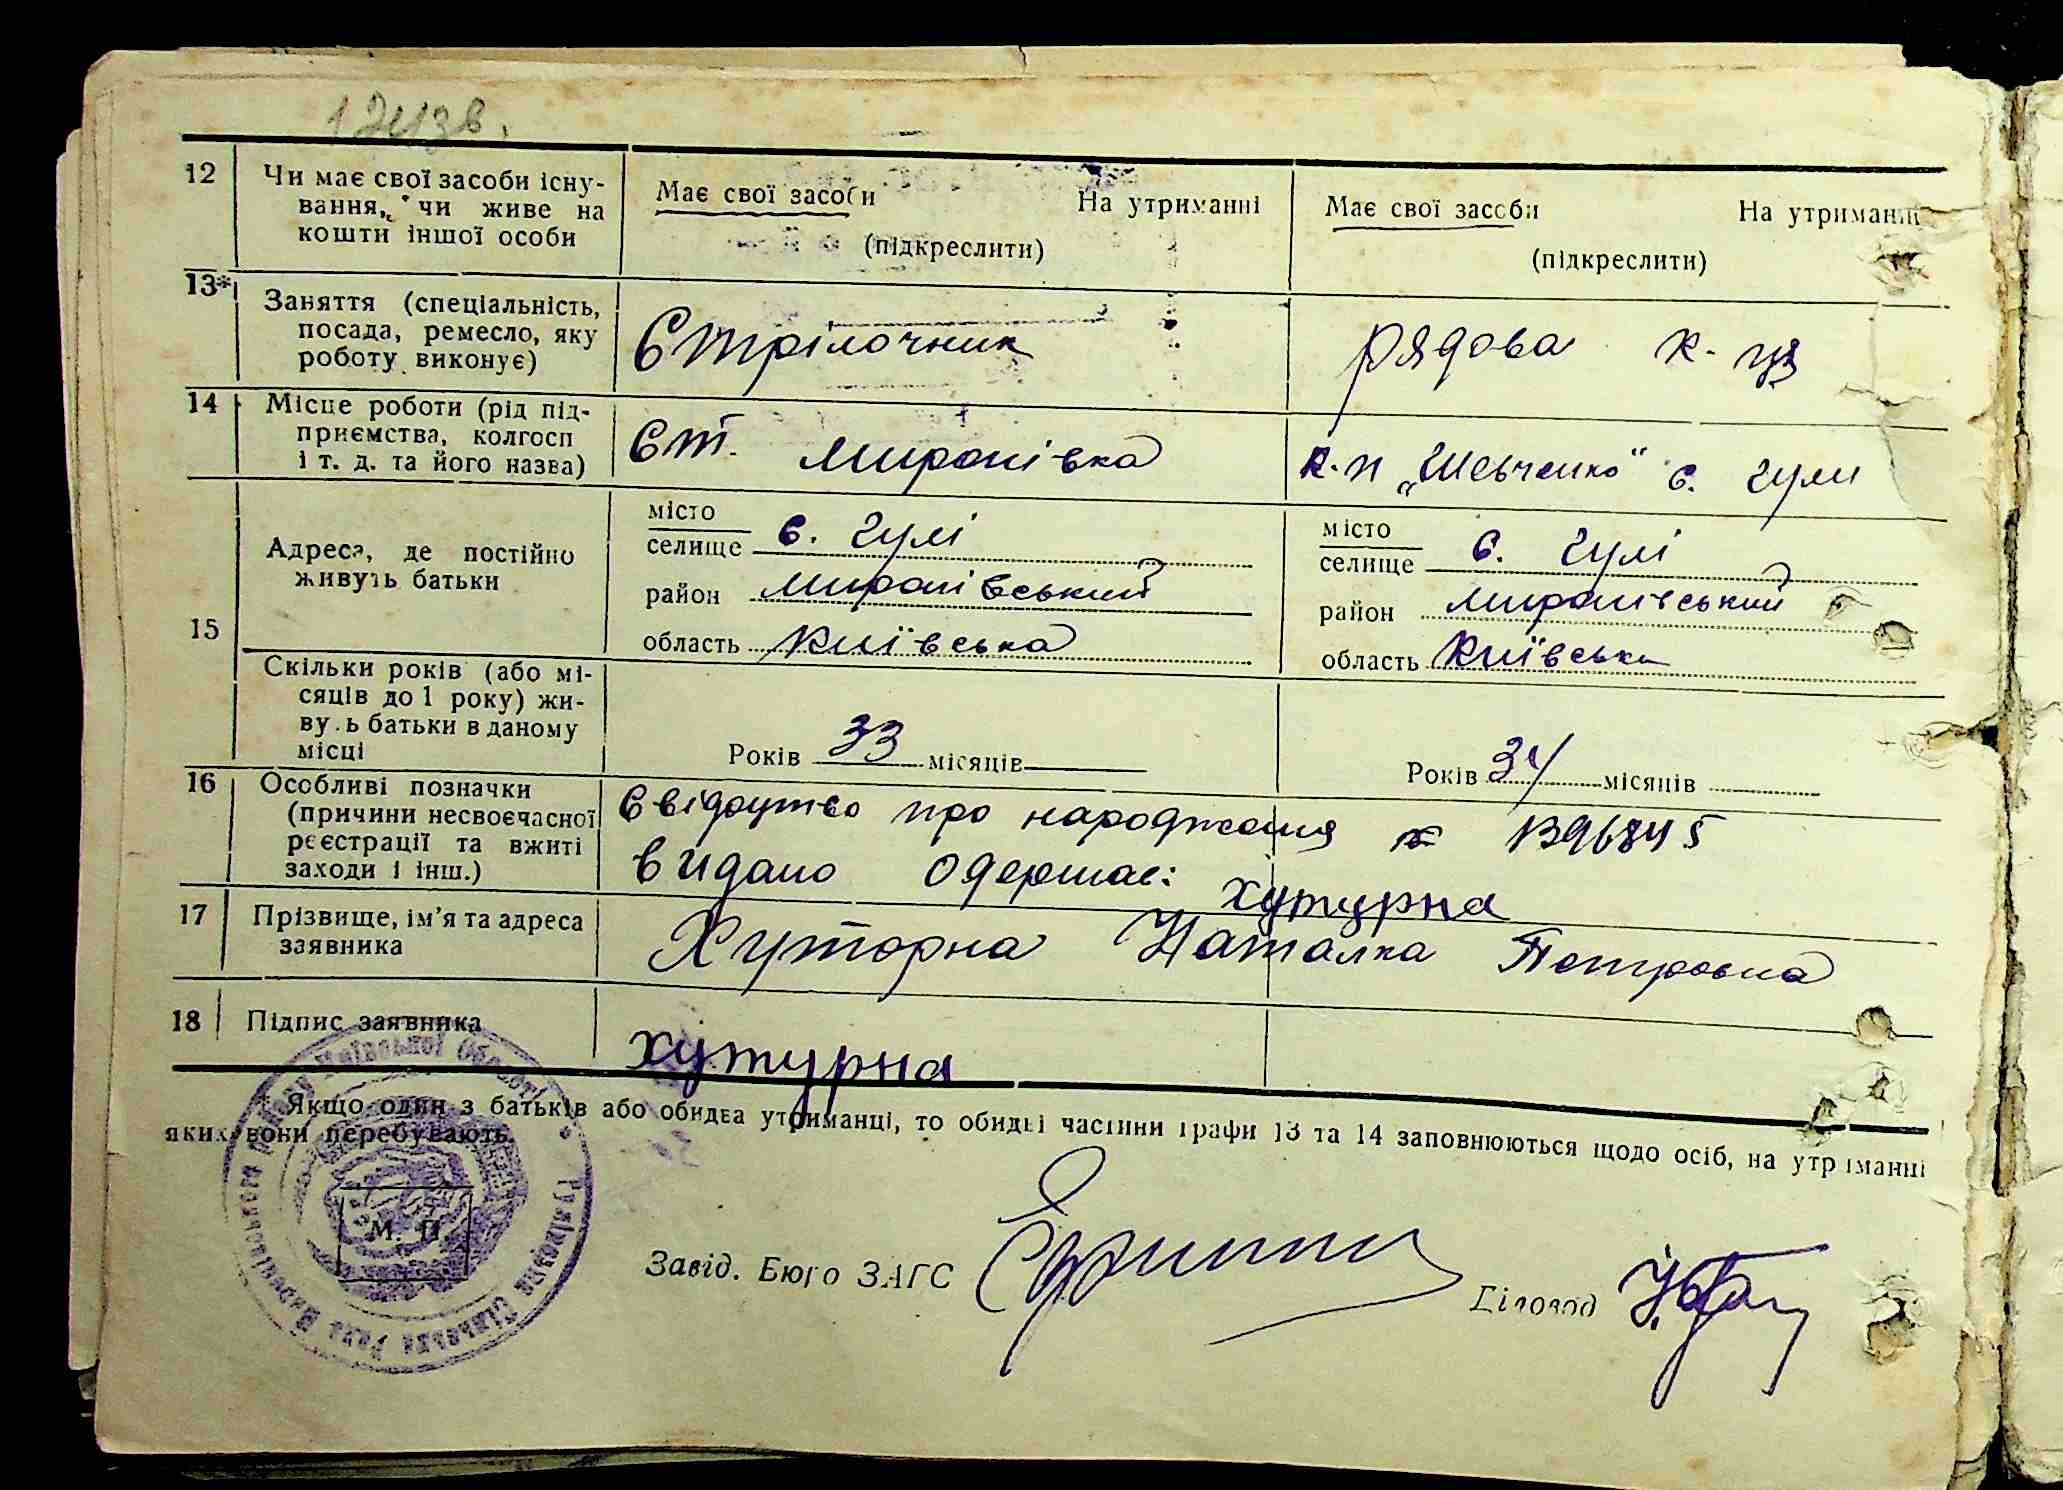 12 Чи має свої засоби існу-
вання, чи живе на
кошти іншої особи
Має свої засоби На утриманні
(підкреслити)
Має свої засоби На утриманні
(підкреслити)
13* Заняття (спеціальність,
посада, ремесло, яку
роботу виконує)
Стрілочник
рядова к-ця
14 Місце роботи (рід під-
приємства, колгосп
і т. д. та його назва)
ст. Миронівка
к-п „Шевченко" с. Гули
15 Адреса, де постійно
живуть батьки
місто
селище с. Гулі
район Миронівський
область Київська
місто
селище с. Гулі
район Миронівський
область Київська
Скільки років (або мі-
сяців до 1 року) жи-
ву ь батьки в даному
місці
Років 33 місяців
Років 34 місяців
16 Особливі позначки
(причини несвоєчасної
реєстрації та вжиті
заходи і інш.)
Свідоцтво про народження № 1396845
видано одержав: хутурна
17 Прізвище, ім'я та адреса
заявника
Хуторна Наталка Петровна
18 Підпис заявника
хутурна
* Якщо один з батьків або обидва утриманці, то обидві частини графи 13 та 14 заповнюються щодо осіб, на утриманні
яких вони перебувають.
М. П.
Завід. Бюро ЗАГС
Діловод